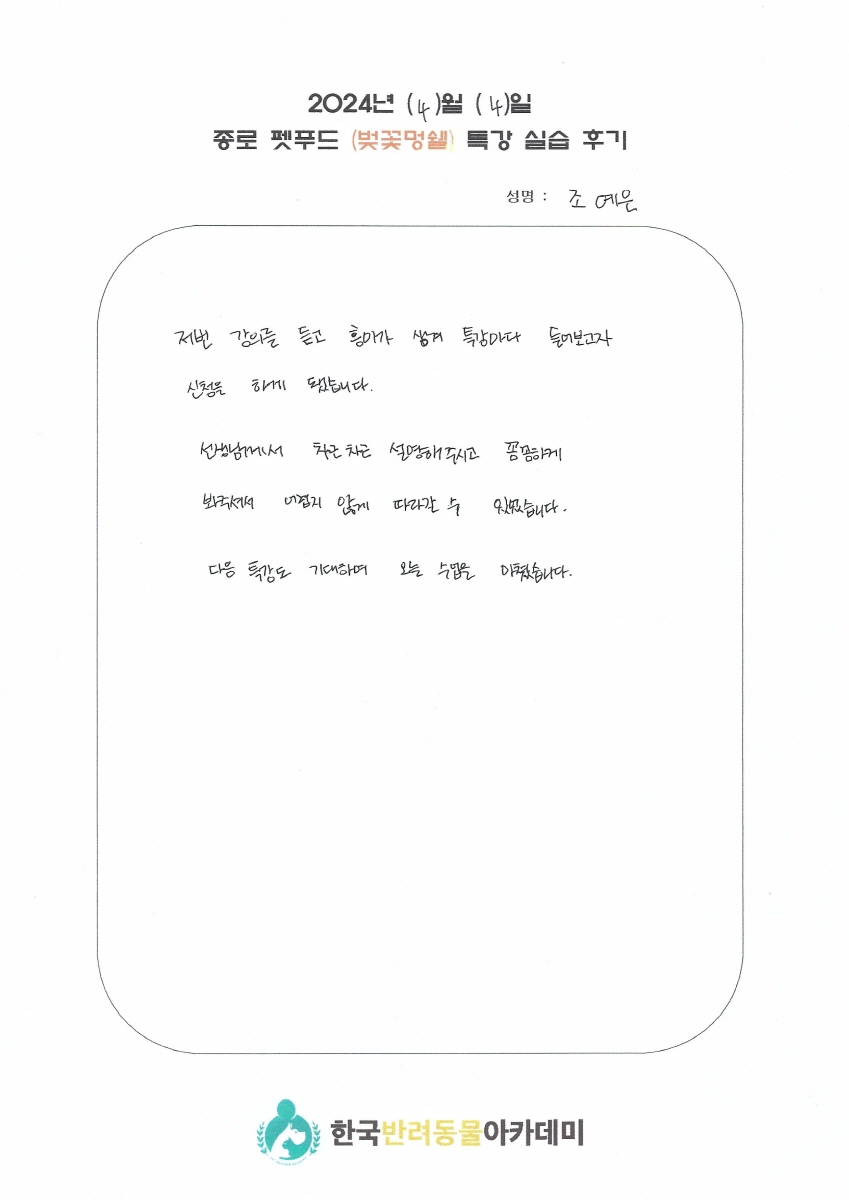 2024년 (4)월 (4)일
종로 펫푸드 (벚꽃멍쉘) 특강 실습 후기
성명 : 조예은
저번 강의를 듣고 흥미가 생겨 특강마다 들어보고자
신청을 하게 되었습니다.
선생님께서 차근차근 설명해주시고 꼼꼼하게
봐주셔서 어렵지 않게 따라갈 수 있었습니다.
다음 특강도 기대하며 오늘 수업을 마쳤습니다.
한국반려동물아카데미